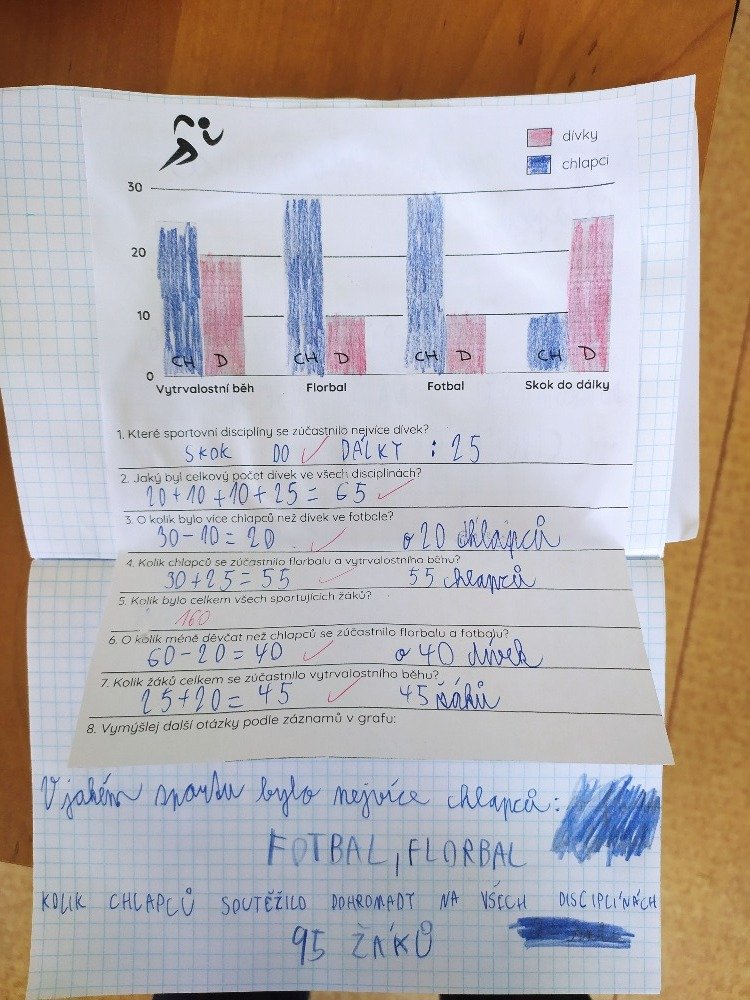 dívky
chlapci
30
20
10
0
CH D CH D CH D CH D
Vytrvalostní běh Florbal Fotbal Skok do dálky
1. Které sportovní disciplíny se zúčastnilo nejvíce dívek?
SKOK DO DÁLKY : 25
2. Jaký byl celkový počet dívek ve všech disciplínách?
20+10+10+25= 65
3. O kolik bylo více chlapců než dívek ve fotbale?
30-10=20 o 20 chlapců
4. Kolik chlapců se zúčastnilo florbalu a vytrvalostního běhu?
30+25=55 55 chlapců
5. Kolik bylo celkem všech sportujících žáků?
160
6. O kolik méně děvčat než chlapců se zúčastnilo florbalu a fotbalu?
60-20=40 o 40 dívek
7. Kolik žáků celkem se zúčastnilo vytrvalostního běhu?
25+20= 45 45 žáků
8. Vymýšlej další otázky podle záznamů v grafu:
V jakém sportu bylo nejvíce chlapců:
FOTBAL, FLORBAL
KOLIK CHLAPCŮ SOUTĚŽILO DOHROMADY NA VŠECH DISCIPLÍNÁCH
95 ŽÁKŮ